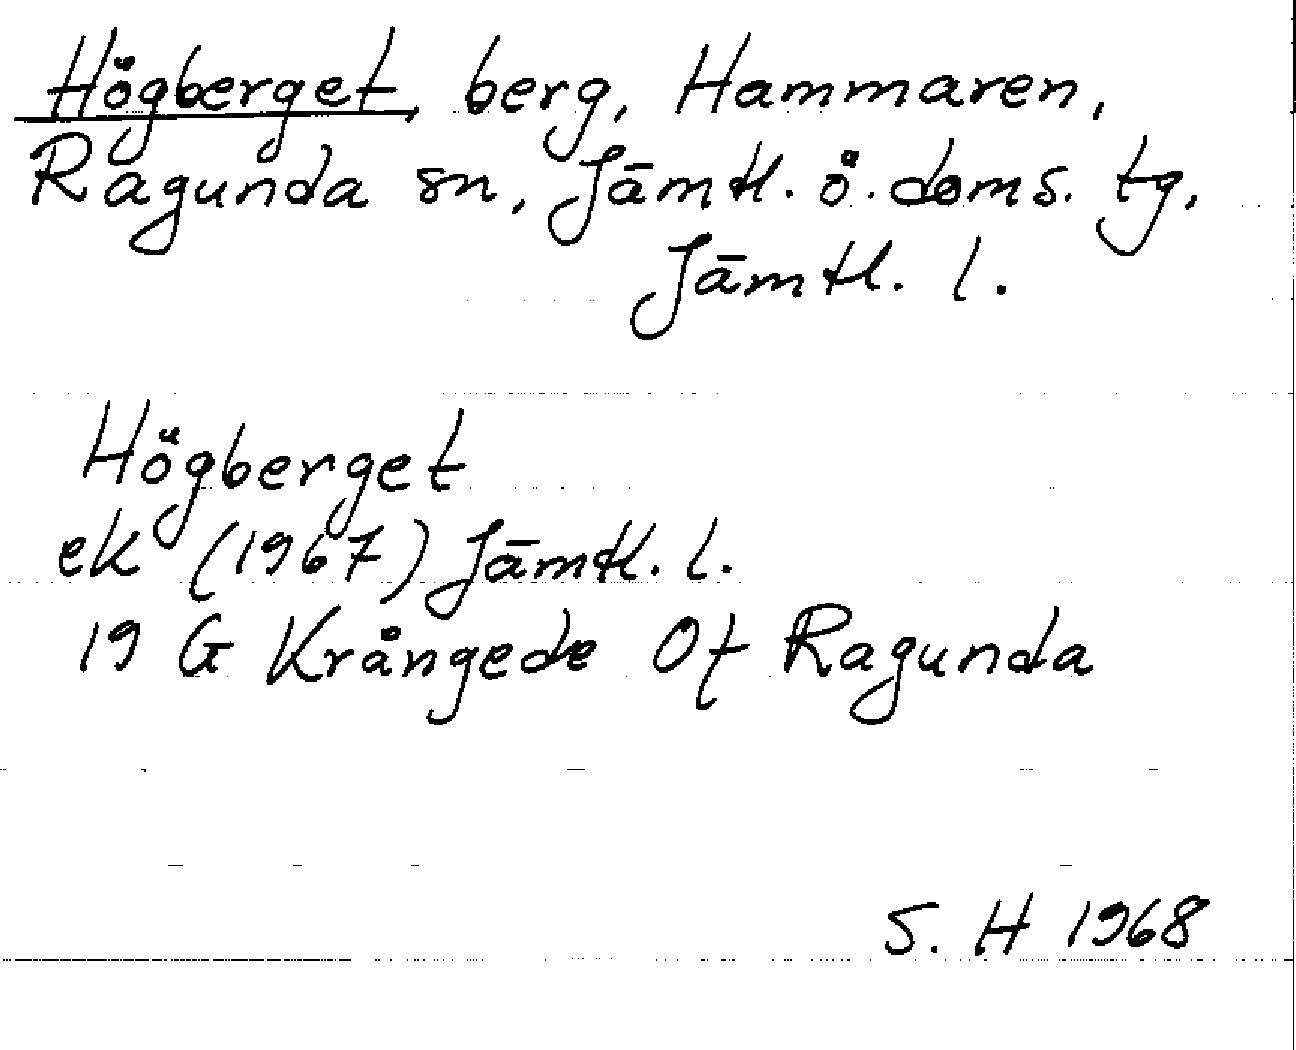 Högberget, berg, Hammaren,
Ragunda sn, Jämtl. ö. doms. tg,
Jämtl. l.
Högberget
ek (1967) Jämtl. l.
19 G Krångede Of Ragunda
S. H 1968